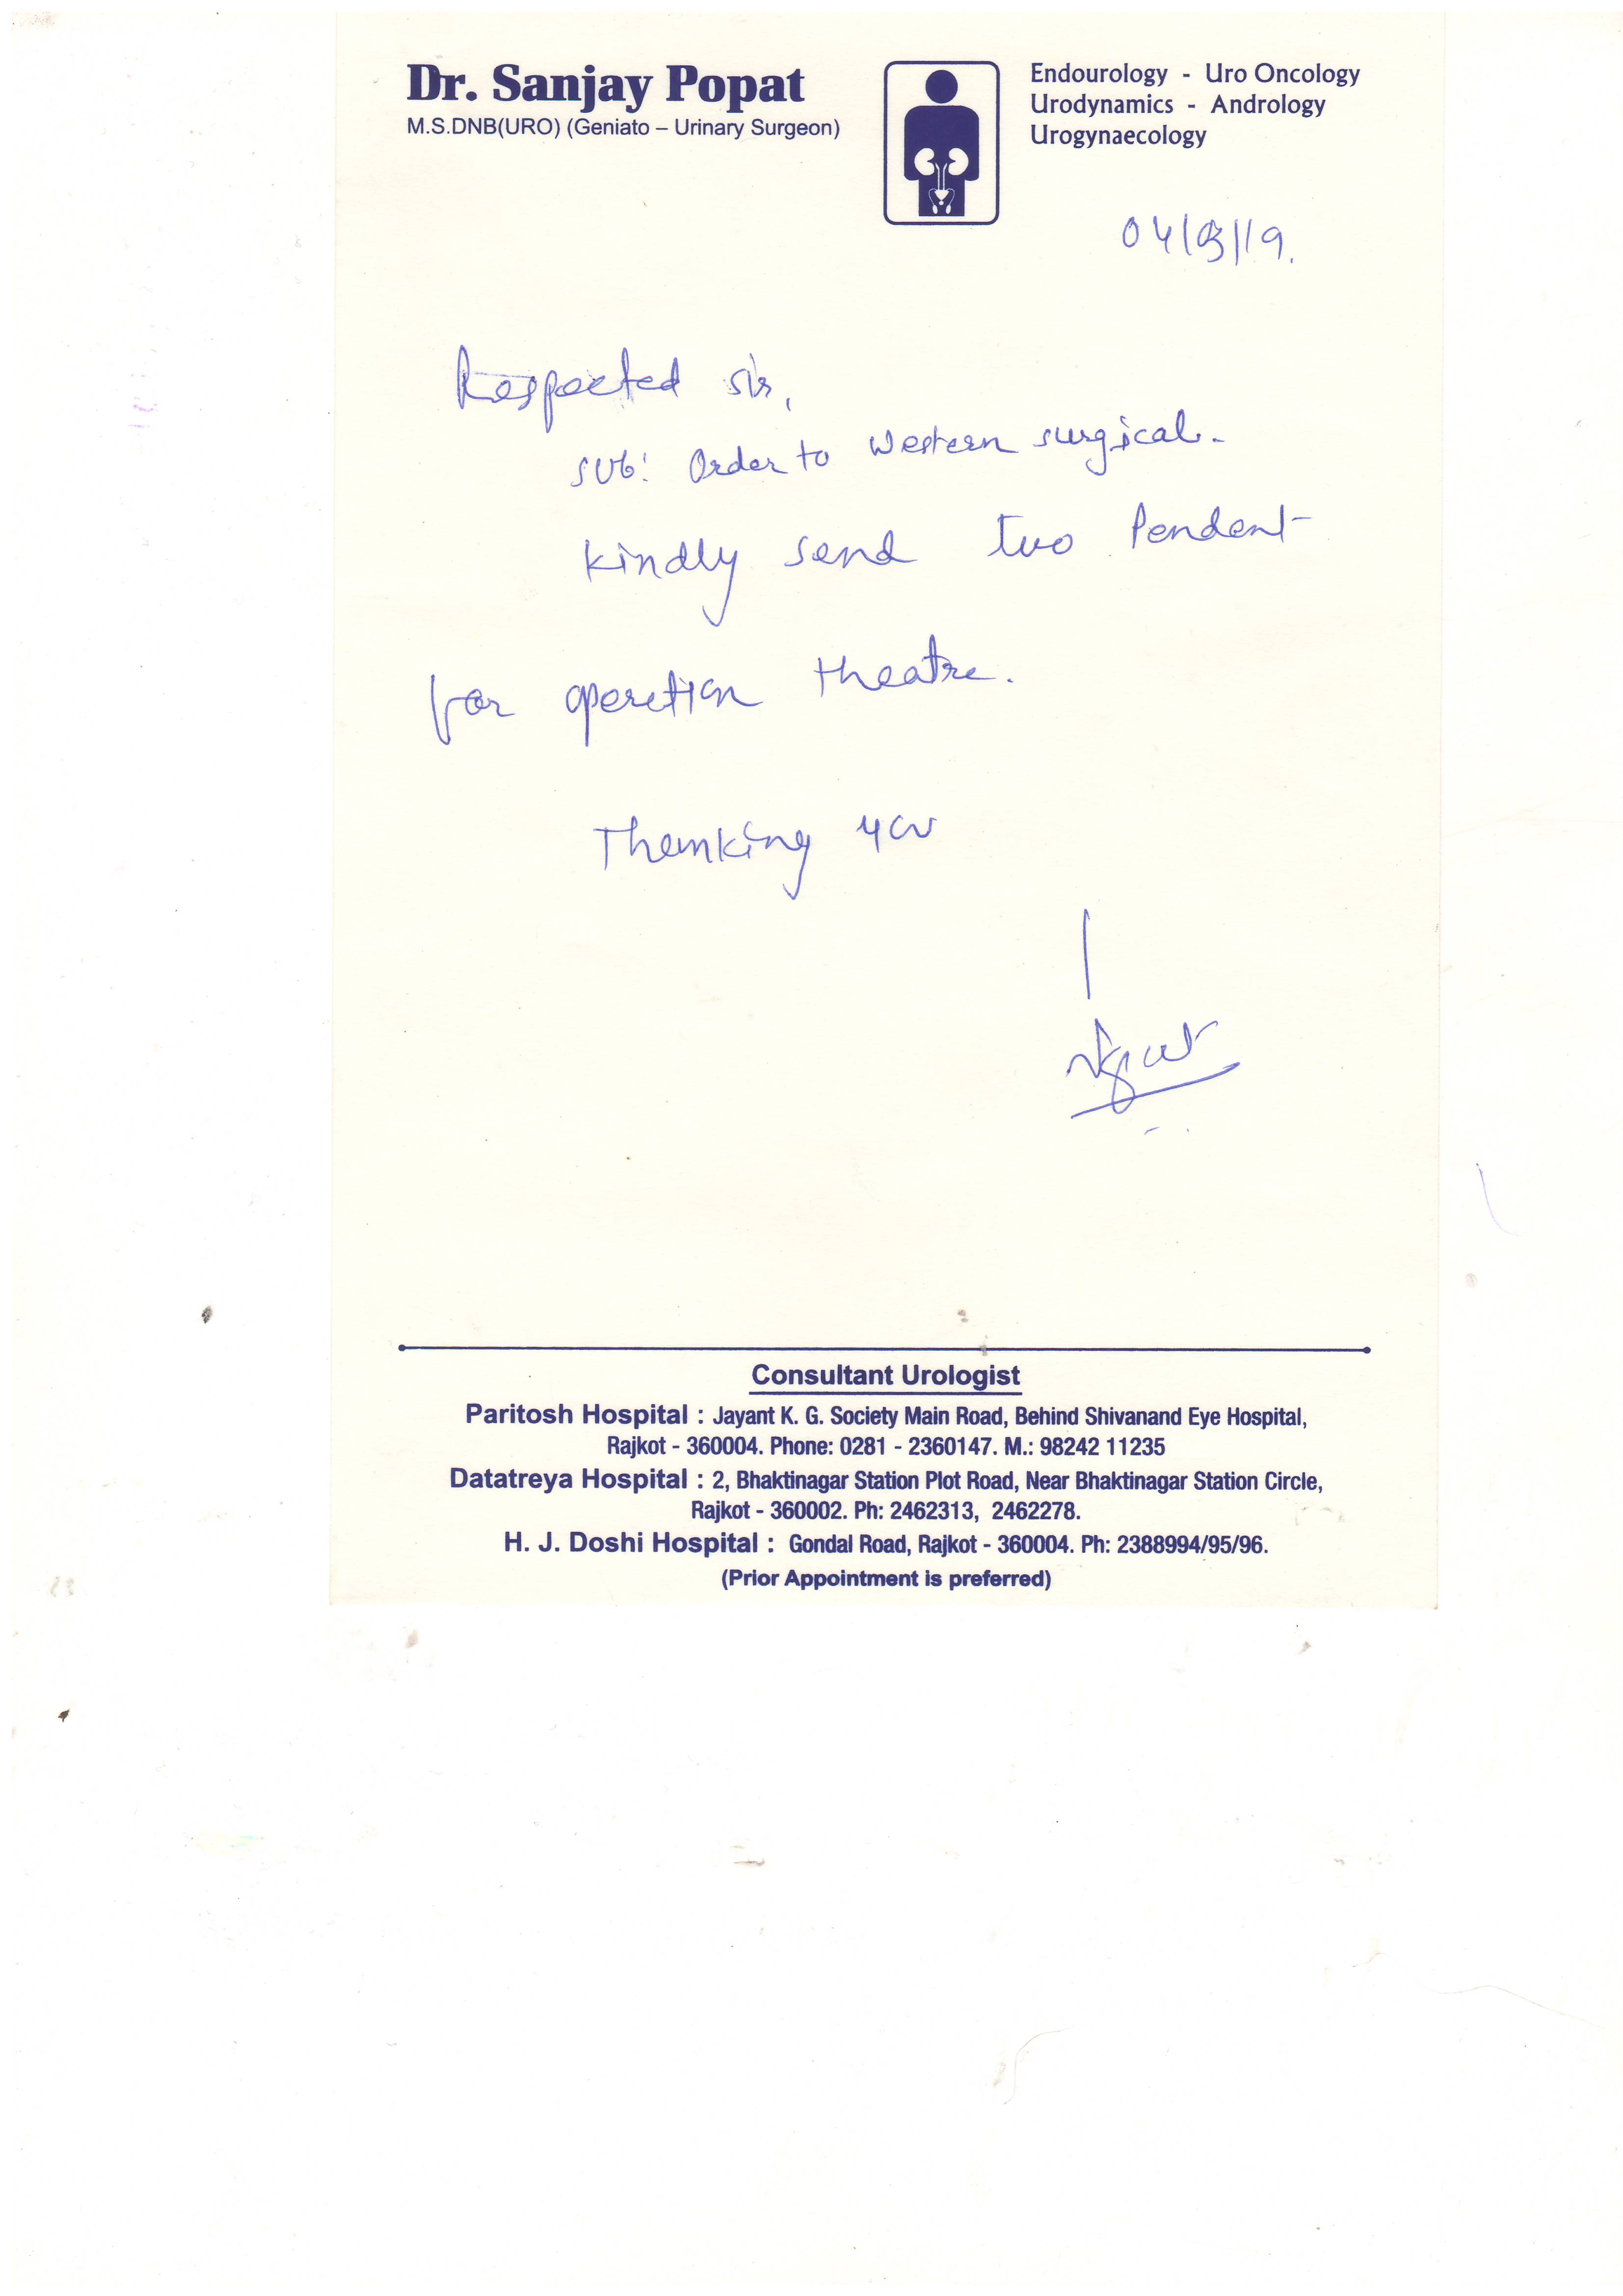 Dr. Sanjay Popat
M.S.DNB(URO) (Geniato – Urinary Surgeon)
Endourology - Uro Oncology
Urodynamics - Andrology
Urogynaecology
04/03/19.
Respected sir,
sub: Order to Western surgical.
kindly send two Pendent
for operation theatre.
Thanking you
Consultant Urologist
Paritosh Hospital : Jayant K. G. Society Main Road, Behind Shivanand Eye Hospital,
Rajkot - 360004. Phone: 0281 - 2360147. M.: 98242 11235
Datatreya Hospital : 2, Bhaktinagar Station Plot Road, Near Bhaktinagar Station Circle,
Rajkot - 360002. Ph: 2462313, 2462278.
H. J. Doshi Hospital : Gondal Road, Rajkot - 360004. Ph: 2388994/95/96.
(Prior Appointment is preferred)